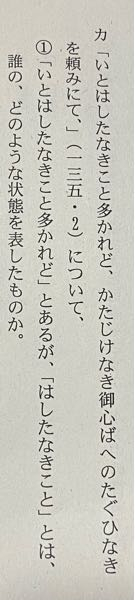 カ「いとはしたなきこと多かれど、かたじけなき御心ばへのたぐひなき
を頼みにて、」(一三五・2)について、
①「いとはしたなきこと多かれど」とあるが、「はしたなきこと」とは、
誰の、どのような状態を表したものか。